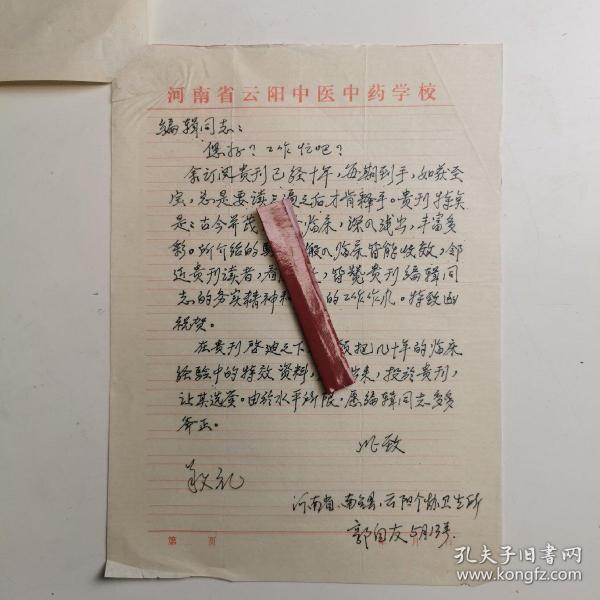 河南省云阳中医中药学校
编辑同志:
您好?工作忙吧?
余订阅贵刊已经十年,每期到手,如获至
宝,总是要读三遍之后才肯释手。贵刊特点
是:古今并茂 临床,深入浅出,丰富多
彩。所介绍的 搬入临床皆能收效,邻
近贵刊读者, 皆赞贵刊编辑同
志的务实精神和 的工作作风。特致函
祝贺。
在贵刊启迪之下 把几十年的临床
经验中的特效资料, 出来,投于贵刊,
让其选登。由于水平所限,愿编辑同志多多
斧正。
此致
敬礼
河南省、南召县、云阳个协卫生所
郭国友 5月13号.
第 页
孔夫子旧书网
www.kongfz.com